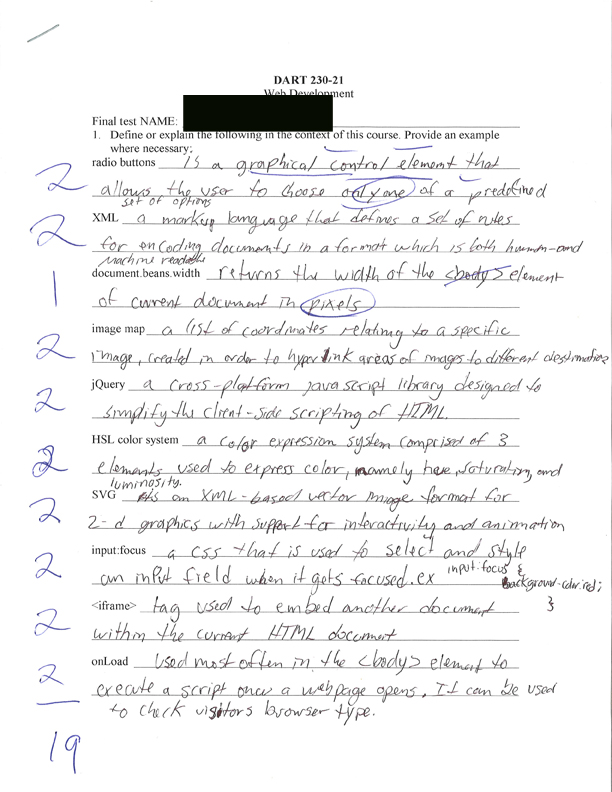 DART 230-21
Web Development
Final test NAME:
1. Define or explain the following in the context of this course. Provide an example
where necessary;
radio buttons is a graphical control element that
2
allows the user to choose only one of a predefined
set of options
XML a markup language that defines a set of rules
2
for encoding documents in a format which is both human-and
machine readable
document.beans.width returns the width of the <body> element
1
of current document in pixels
image map a list of coordinates relating to a specific
2
image, created in order to hyperlink areas of images to different destinations
jQuery a cross-platform javascript library designed to
2
simplify the client-side scripting of HTML.
HSL color system a color expression system comprised of 3
2
elements used to express color, namely hue, saturation, and
luminosity.
SVG its an XML-based vector image format for
2
2-d graphics with support for interactivity and animation
input:focus a css that is used to select and style
2
an input field when it gets focused. ex input:focus {
background-color:red;
}
<iframe> tag used to embed another document
2
within the current HTML document
onLoad Used most often in the <body> element to
2
execute a script once a webpage opens. It can be used
to check visitors browser type.
19